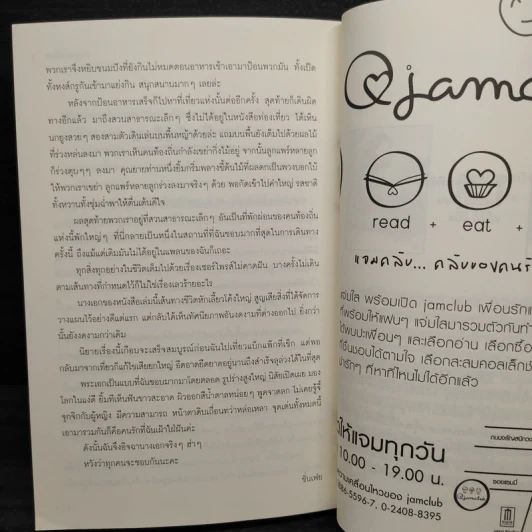 พวกเราจึงหยิบขนมปังที่ยังกินไม่หมดตอนอาหารเช้าเอามาป้อนพวกมัน ทั้งเป็ด
ทั้งหงส์กรูกันเข้ามาแย่งกิน สนุกสนานมากๆ เลยล่ะ
หลังจากป้อนอาหารเสร็จก็ไปหาที่เที่ยวแห่งนั้นต่ออีกครั้ง สุดท้ายก็เดินผิด
ทางอีกแล้ว มาถึงสวนสาธารณะเล็กๆ ซึ่งไม่ได้อยู่ในหนังสือท่องเที่ยว ได้เห็น
นกยูงสวยๆ สองสามตัวเดินเล่นบนพื้นหญ้าด้วยล่ะ แถมบนพื้นยังเต็มไปด้วยผลไม้
ที่ร่วงหล่นลงมา พวกเราเห็นคนท้องถิ่นกำลังเขย่ากิ่งไม้อยู่ จากนั้นลูกแพร์หลายลูก
ก็ร่วงตุบๆๆ ลงมา คุณยายท่านหนึ่งยิ้มกริ่มพลางชี้ต้นไม้ที่ผลดกเป็นพวงบอกใบ้
ให้พวกเราเขย่า ลูกแพร์หลายลูกร่วงลงมาจริงๆ ด้วย พอกัดเข้าไปคำใหญ่ รสชาติ
ทั้งหวานทั้งชุ่มฉ่ำพาให้ตื่นเต้นดีใจ
ผลสุดท้ายพวกเราอยู่ที่สวนสาธารณะเล็กๆ อันเป็นที่พักผ่อนของคนท้องถิ่น
แห่งนี้พักใหญ่ๆ ที่นี่กลายเป็นหนึ่งในสถานที่ที่ฉันชอบมากที่สุดในการเดินทาง
ครั้งนี้ ถึงแม้แต่เดิมมันไม่ได้อยู่ในแพลนของฉันก็เถอะ
ทุกสิ่งทุกอย่างในชีวิตเต็มไปด้วยเรื่องเซอร์ไพรส์ไม่คาดฝัน บางครั้งไม่เดิน
ตามเส้นทางที่กำหนดไว้ก็ไม่ใช่เรื่องเลวร้ายอะไร
นางเอกของหนังสือเล่มนี้เส้นทางชีวิตหักเลี้ยวโค้งใหญ่ สูญเสียสิ่งที่ได้จัดการ
วางแผนไว้อย่างดีแต่แรก แต่กลับได้เห็นทัศนียภาพอันงดงามที่ต่างออกไป ยิ่งกว่า
นั้นยังงดงามกว่าเดิม
นิยายเรื่องนี้เกือบจะเสร็จสมบูรณ์ก่อนฉันไปเที่ยวแบ็กแพ็กที่เช็ก แต่พอ
กลับมาจากเที่ยวก็แก้ไขเสียยกใหญ่ อืดอาดยืดยาดอยู่นานถึงสำเร็จลุล่วงได้ในที่สุด
พระเอกเป็นแบบที่ฉันชอบมากมาโดยตลอด รูปร่างสูงใหญ่ นิสัยเปิดเผย มอง
โลกในแง่ดี ยิ้มทีเห็นฟันขาวสะอาด ผิวออกสีน้ำตาลหน่อยๆ พูดจาตลก ไม่เคยรู้จี้
จุกจิกกับผู้หญิง มีความสามารถ หน้าตาดินเถื่อนทว่าหล่อเหลา จุดเด่นทั้งหมดนี้
เอามารวมกันก็คือคนรักที่ฉันเฝ้าใฝ่ฝันค่ะ
ดังนั้นฉันจึงอิจฉานางเอกจริงๆ ฮ่าๆ
หวังว่าทุกคนจะชอบกันนะคะ
jamc
read + eat +
แจมคลับ... คลับของคนรั
แจ่มใส พร้อมเปิด jamclub เพื่อนรักแ
ที่พร้อมให้แฟนๆ แจ่มใสมารวมตัวกันทำ
ได้พบปะเพื่อนๆ และเลือกอ่าน เลือกซื้อ
ที่ชื่นชอบได้ตามใจ เลือกสะสมคอลเล็กชั่
น่ารักๆ ที่หาที่ไหนไม่ได้อีกแล้ว
ให้แจมทุกวัน
10.00 - 19.00 น.
ความเคลื่อนไหวของ jamclub
886-5596-7, 0-2408-8395